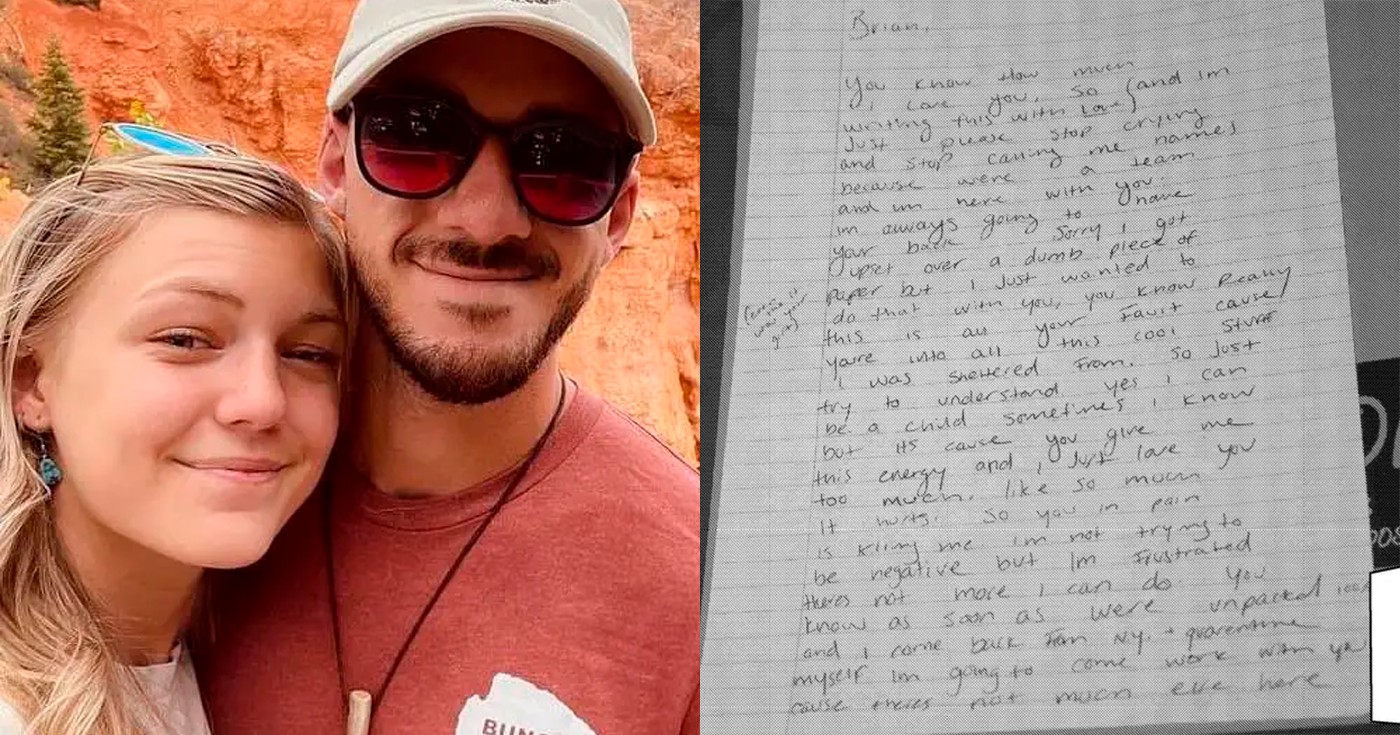 Brian,
You know How much
I love you, so (and im
writing this with Love)
Just please stop crying
and stop calling me names
because were a team
and im here with you.
im always going to have
your back. Sorry I got
upset over a dumb piece of
paper but I Just wanted to
do that with you, you know Really
this is all your Fault cause
youre into all this cool stuff
I was sheltered From. So Just
try to understand yes i can
be a child sometimes I know
but its cause you give me
this energy and I Just love you
too much. like so much
it hurts. So you in pain
is kling me. im not trying to
be negative but Im Frustrated
theres not more I can do. You
know as soon as were unpacked
and I come back from N.Y. + quarentine
myself im going to come work with
cause theres not much else here